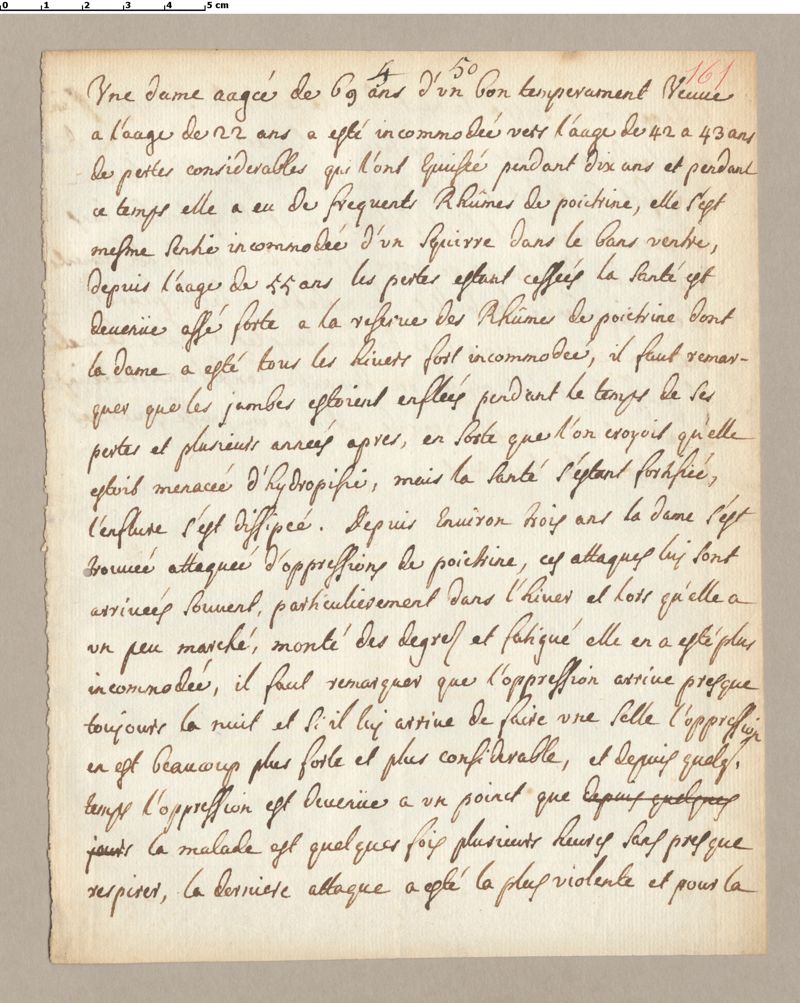 0 1 2 3 4 5 cm
4 50 161
Vne dame aagée de 69 ans d'vn bon temperament Veuue
a l'aage de 22 ans a esté incommodeé vers l'aage de 42 a 43 ans
de pertes considerables qui l'ont Epuiseé pendant dix ans et pendant
ce temps elle a eu de frequents Rhûmes de poictrine, elle s'est
mesme sentie incommodeé d'vn squirre dans le bans ventre,
depuis l'aage de 55 ans les pertes estant cesseés la santé est
deuenüe assé forte a la reserue des Rhûmes de poictrine dont
la dame a esté tous les hiuers fort incommodeé, il faut remar-
quer que les jambes estoient enfleés pendant le temps de ses
pertes et plusieurs anneés apres, en sorte que l'on croyoit qu'elle
estoit menaceé d'hydropisie, mais la santé s'estant fortifieé,
l'enflure s'est dissipeé. Depuis Enuiron trois ans la dame s'est
trouueé attaqueé d'oppressions de poictrine, ces attaques luy sont
arriueés souuent, particulierement dans l'hiuer et lors qu'elle a
vn peu marché, monté des degrez et fatigué elle en a esté plus
incommodeé, il faut remarquer que l'oppression arriue presque
toujours la nuit et s'il luy arriue de faire vne selle l'oppression
en est beaucoup plus forte et plus considerable, et depuis quelq,
temps l'oppression est deuenüe a vn poinct que depuis quelques
jours la malade est quelques fois plusieurs heures sans presque
respirer, la derniere attaque a esté la plus violente et pour la